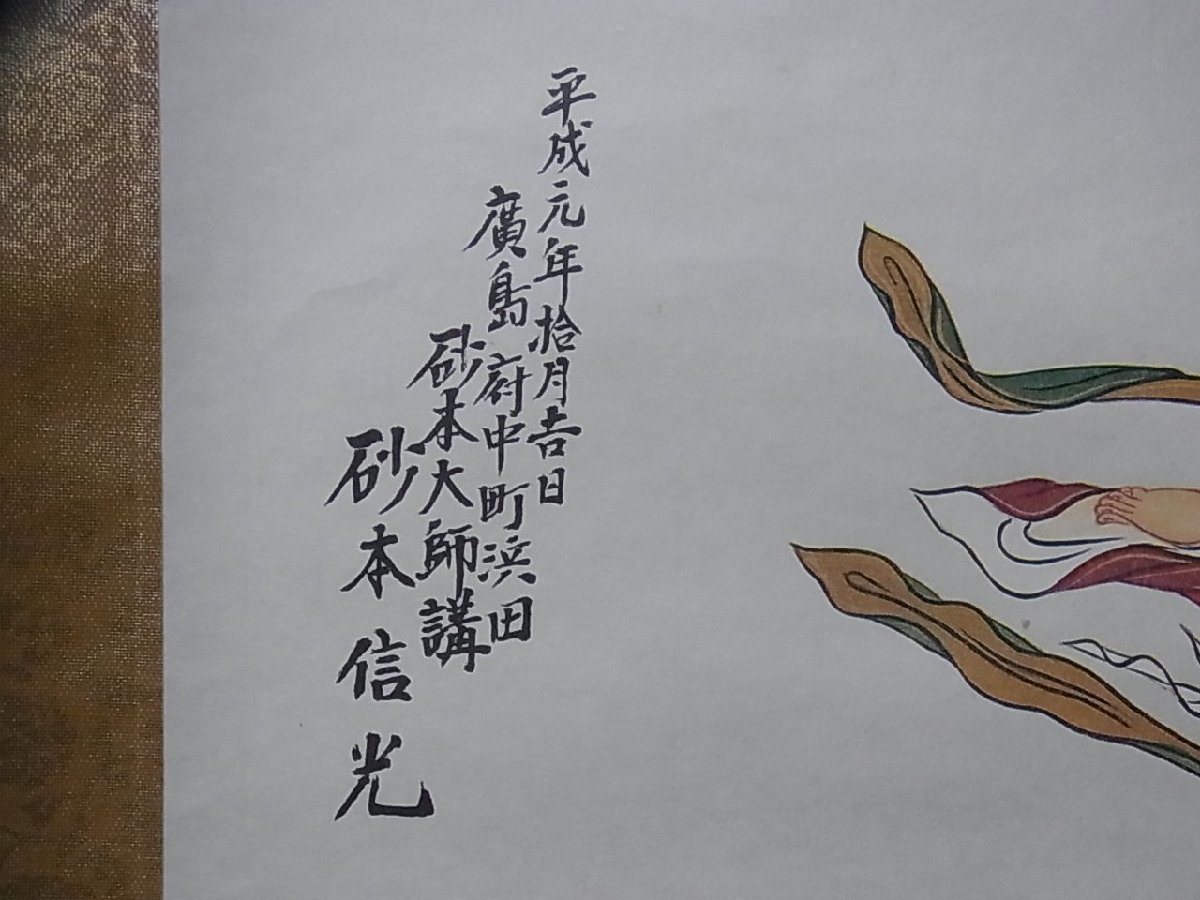 平成元年拾月吉日
廣島府中町浜田
砂本大師講
砂本信光